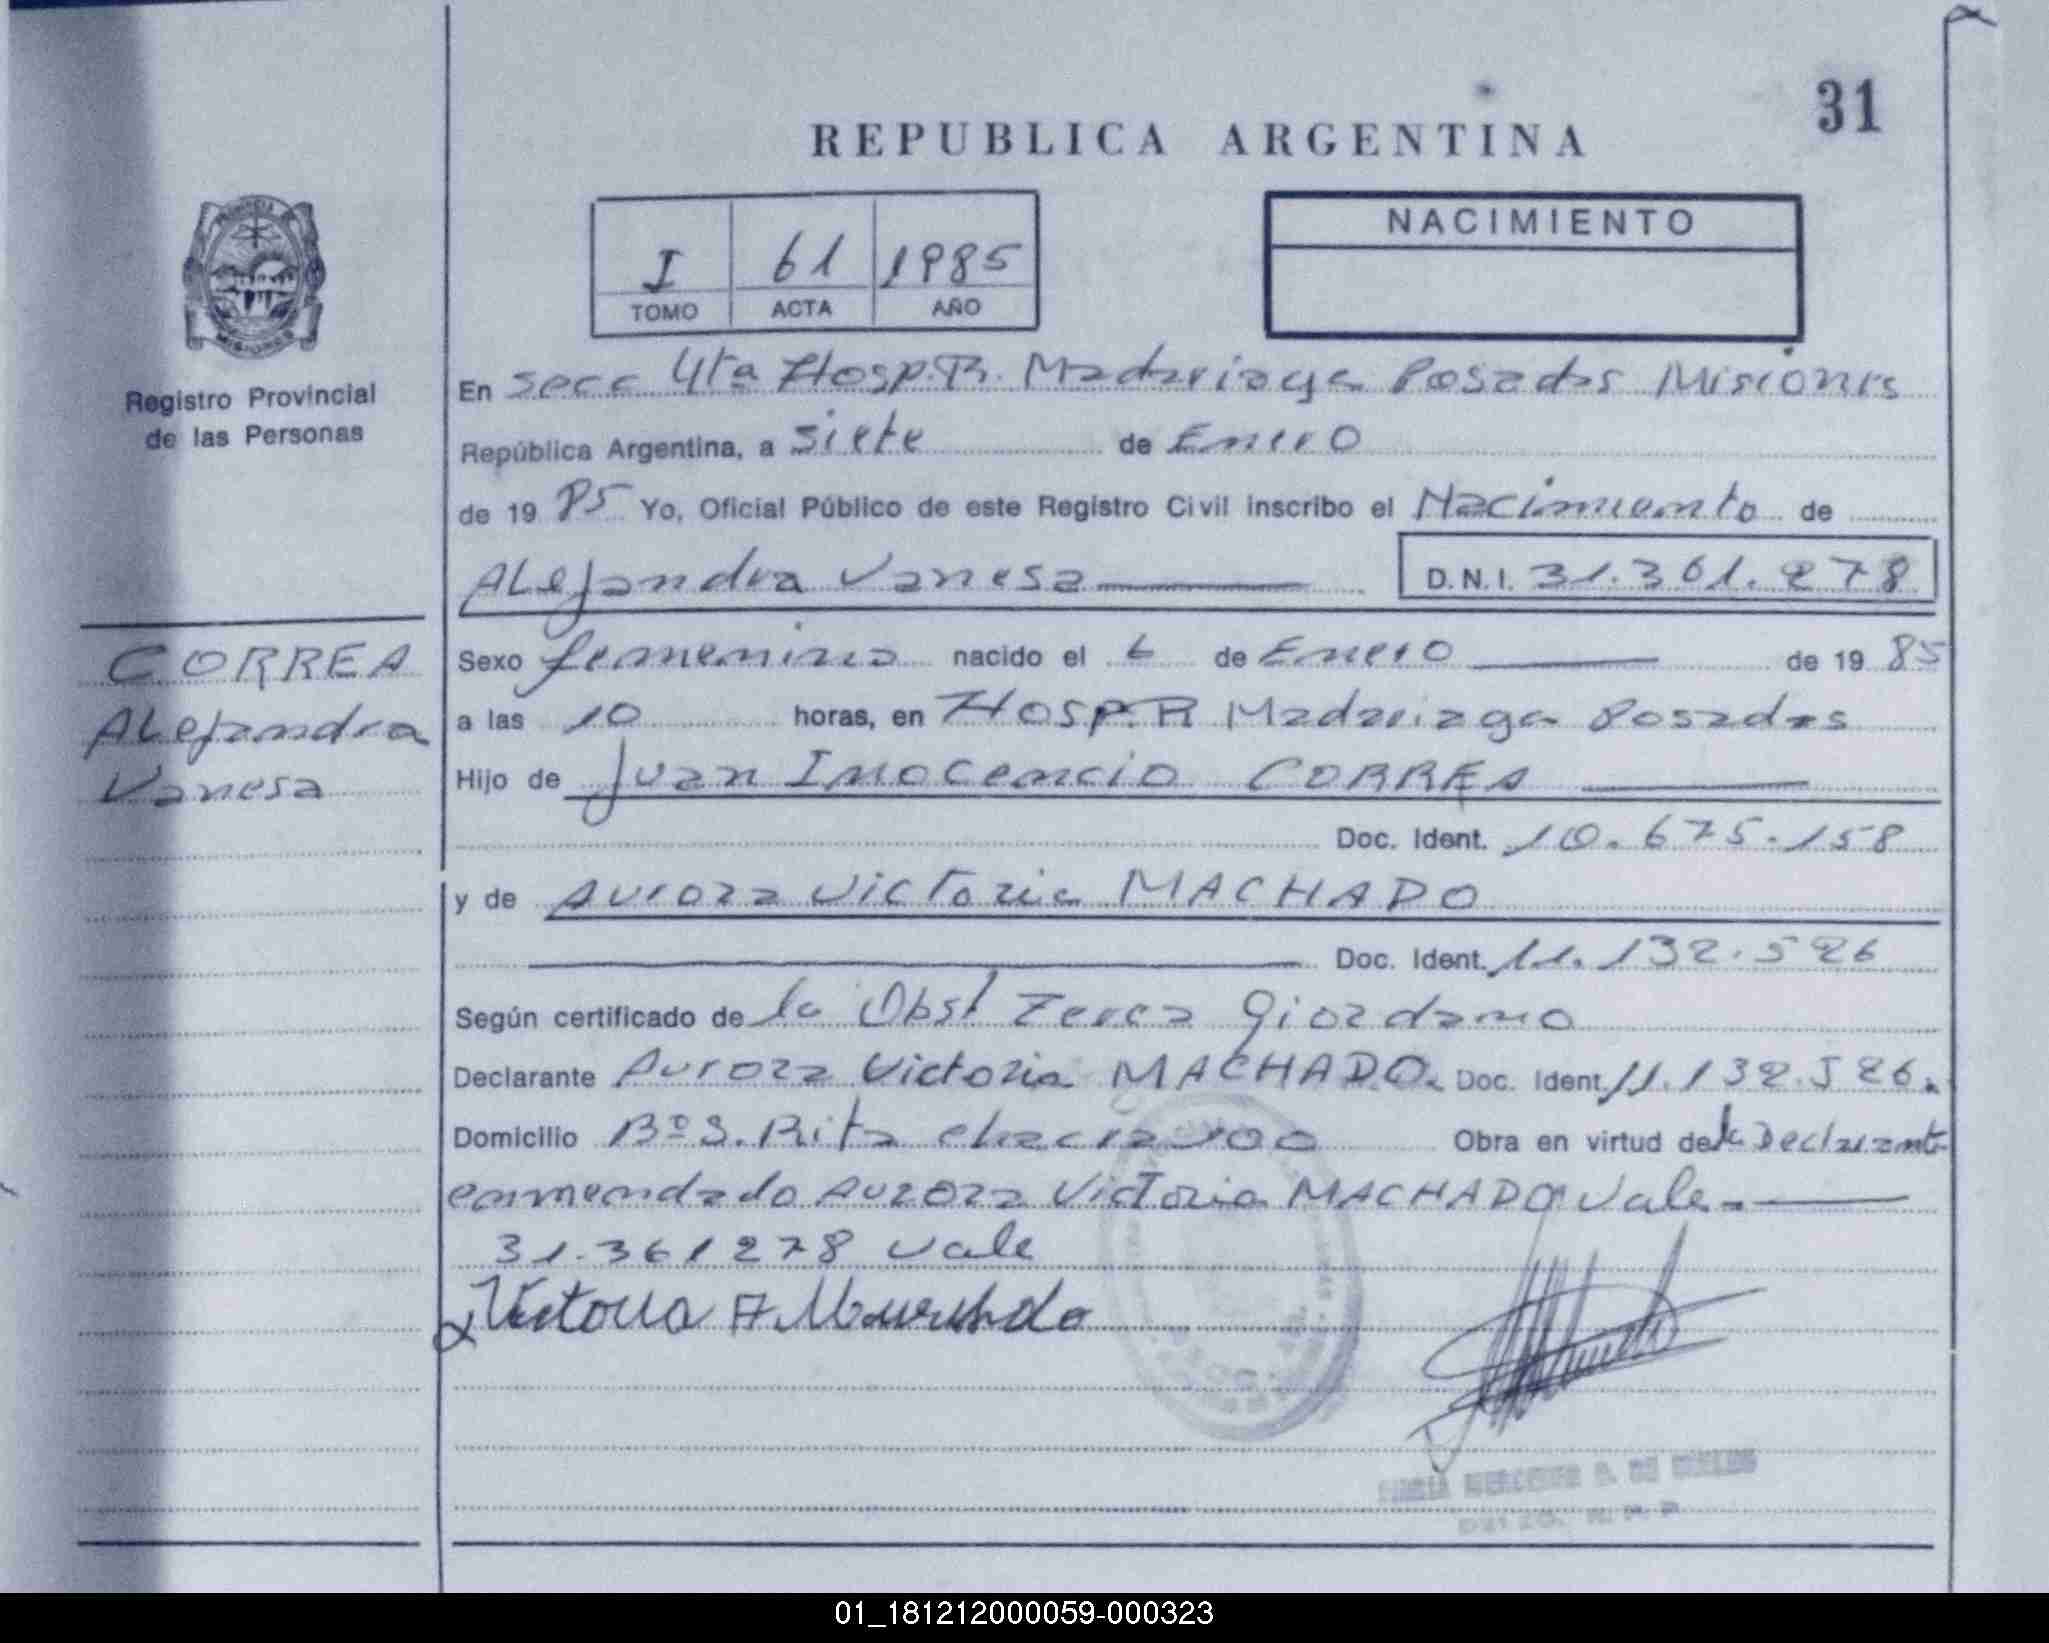 31
REPUBLICA ARGENTINA
I 61 1985
TOMO ACTA AÑO
NACIMIENTO
MISIONES
Registro Provincial
de las Personas
En Secc 4ta Hosp. R. Madariaga Posadas Misiones
República Argentina, a Siete de Enero
de 1985 Yo, Oficial Público de este Registro Civil inscribo el Nacimiento de
Alejandra Vanesa D.N.I. 31.361.278
CORREA
Alejandra
Vanesa
Sexo femenino nacido el 6 de Enero de 1985
a las 10 horas, en Hosp. R Madariaga Posadas
Hijo de Juan Inocencio CORREA
Doc. Ident. 10.675.158
y de Aurora Victoria MACHADO
Doc. Ident. 11.132.526
Según certificado de la Obst Giordano
Declarante Aurora Victoria MACHADO. Doc. Ident. 11.132.526.
Domicilio Bº S. Rita chacra Obra en virtud de la Declarante
enmendado Aurora Victoria MACHADO Vale.
31.361278 vale
Victoria A
01_181212000059-000323